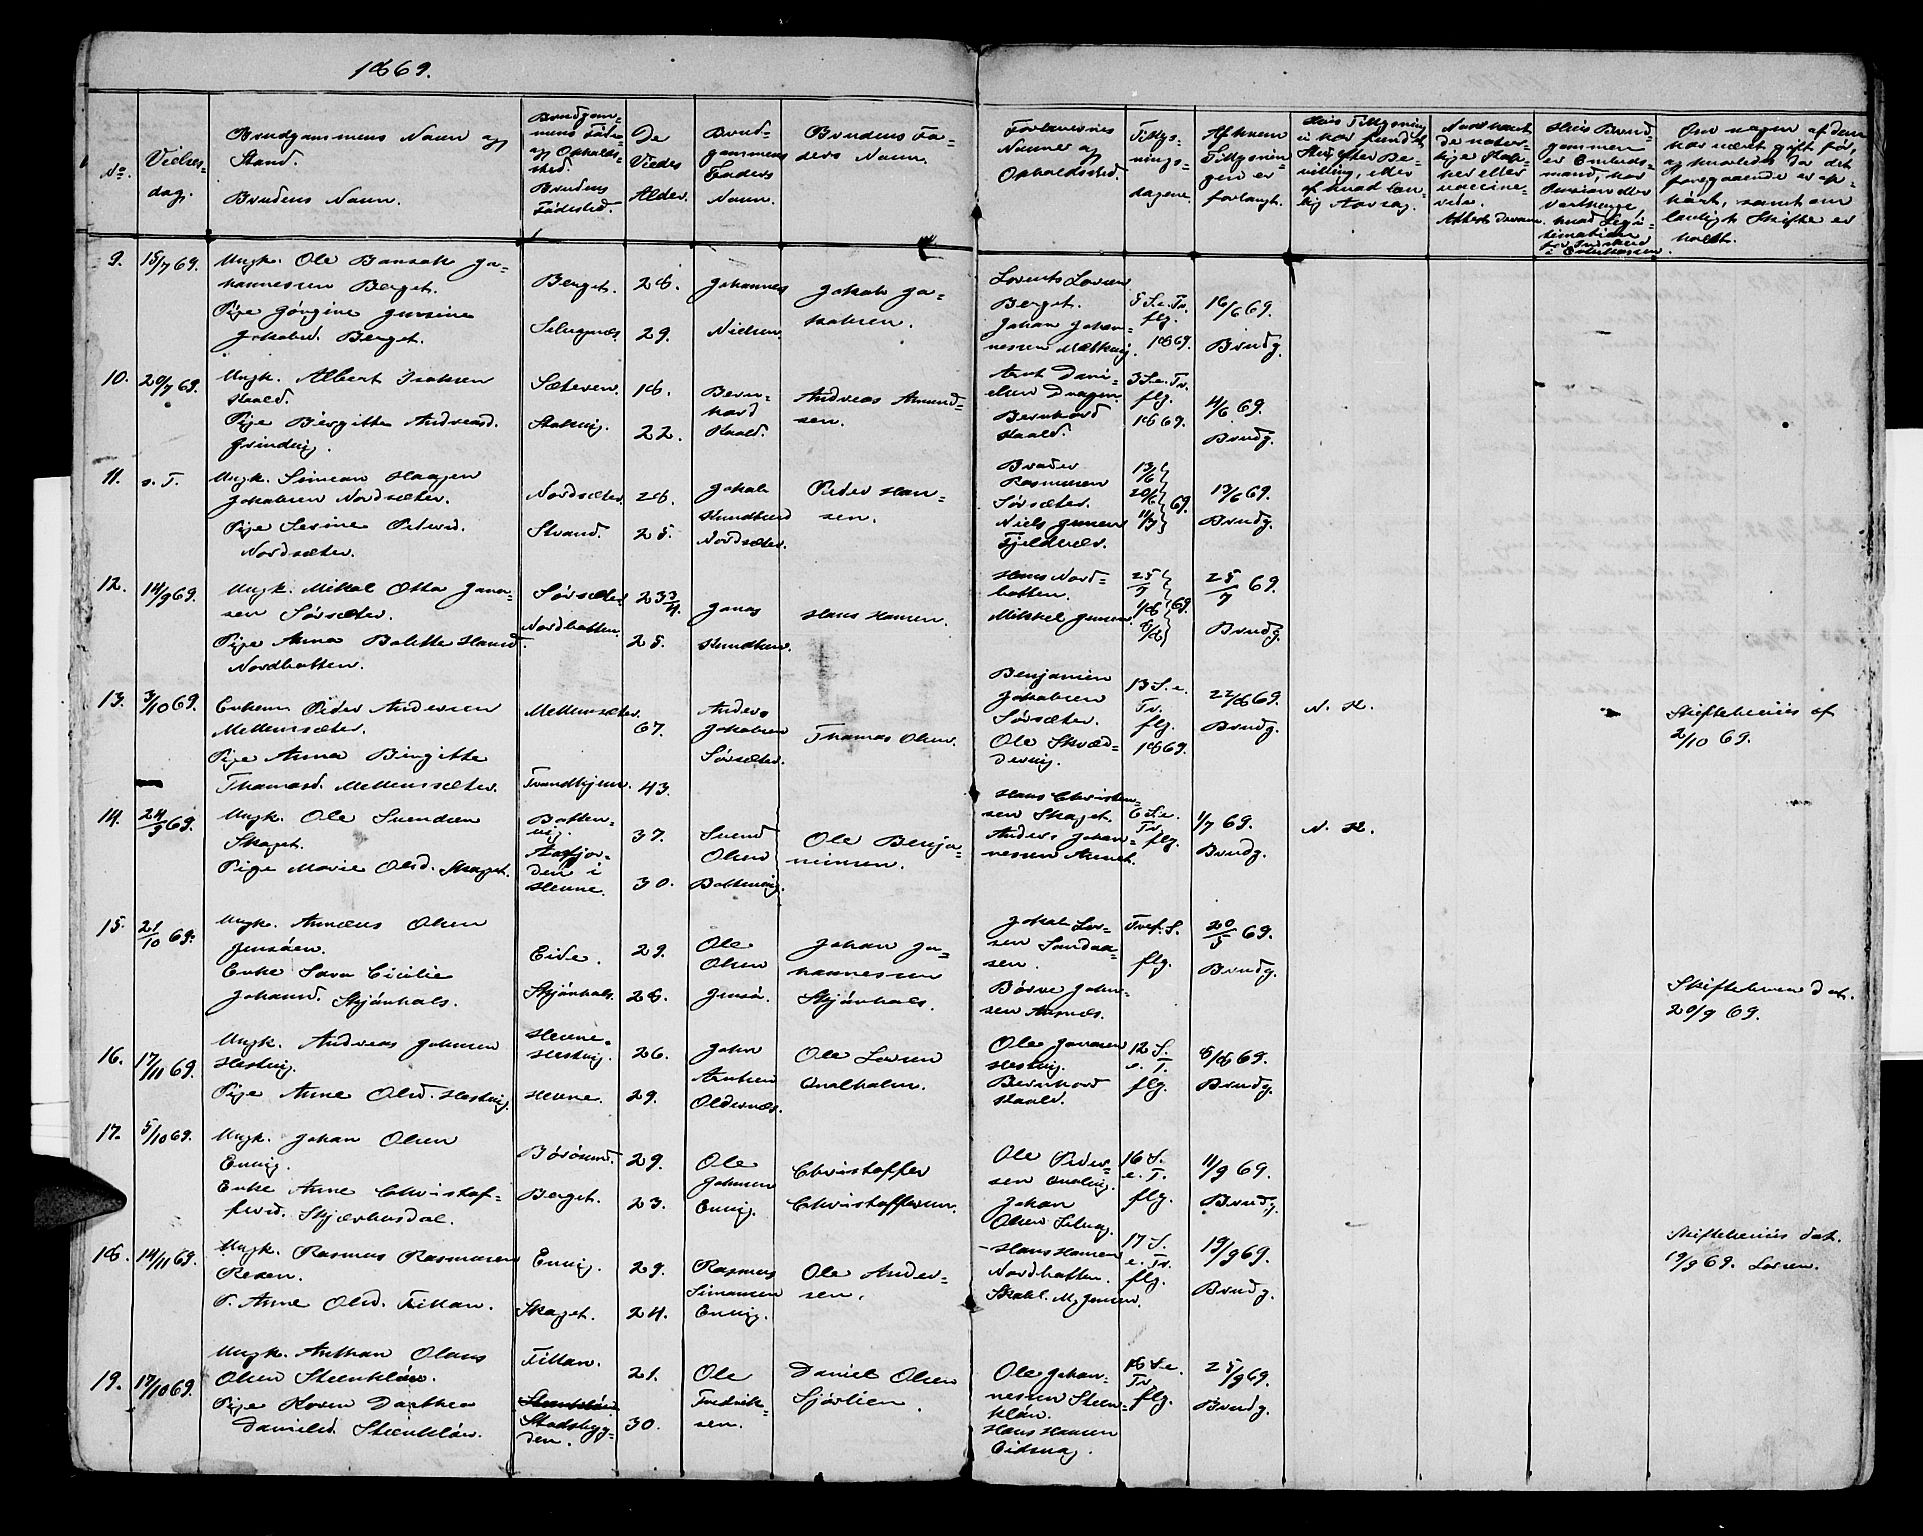 1869.
No.
Vielses-
dag.
Brudgommens Navn og
Stand.
Brudens Navn.
Brudgom-
mens Føde-
og Opholds-
sted.
Brudens
Fødested.
De
Viedes
Alder.
Brud-
gommens
Faders
Navn.
Brudens Fa-
ders Navn.
Forlovernes
Navne og
Opholdssted.
Tillys-
nings-
dagene.
Af hvem
Tillysnin-
gen er
forlangt.
Hvis Tillysning
ei har fundet
Sted, efter Be-
villing, eller
af hvad lov-
lig Aarsag.
Naar havt
de natur-
lige Kop-
per eller
vaccine-
rede.
Attests Datum.
Hvis Brud-
gommen
er Embeds-
mand, har
Pension eller
Vartpenge
hvad Legi-
timation
for Indskud
i Enkekassen.
Om nogen af dem
har været gift før,
og hvorledes da det
foregaaende er op-
hørt, samt om
lovligt Skifte er
holdt.
9. 15/7 69. Ungk. Ole Bansak Jo-
hannessen Berget.
Pige Jørgine Jensine
Jakobsd. Berget.
Berget. 28.
Selvgnæs 29.
Johannes
Nielsen.
Jakob Ja-
kobsen.
Lorents Lorens
Berget.
Johan Johan-
nessen Mælkvig.
5 S. e. Tr.
flg.
1869.
16/6 69.
Brudg.
10. 20/7 69. Ungk. Albert Isaksen
Kaald.
Pige Birgitte Andreasd.
Grindvig.
Sæteren. 18.
Stolvig. 22.
Bern-
hard
Kaald.
Andreas Amund-
sen.
Arnt Dani-
elsen Dragen
Bernhard
Kaald.
3 S. e. Tr.
flg.
1869.
4/6 69.
Brudg.
11. s. T. Ungk. Simean Haagen
Jakobsen Nordsæter.
Pige Serine Pedersd.
Nordsæter.
Nordsæter. 28.
Strand. 25.
Jakob
Knudsen
Nordsæter.
Peder Han-
sen.
Broder
Rasmussen
Sørsæter.
Niels Jensen
Fjeldvær.
13/6
20/6 69.
11/7
13/6 69.
Brudg.
12. 14/9 69. Ungk. Mikal Otto Jonas-
sen Sørsæter.
Pige Anna Bolette Hansd.
Nordbotten.
Sørsæter 23 3/4.
Nordbotten. 25.
Jonas
Knudsen.
Hans Hansen.
Hans Nord-
botten.
Mikkel Jensen
25/7
1/8 69.
8/8
25/7 69.
Brudg.
13. 3/10 69. Enkem. Peder Andersen
Mellemsæter.
Pige Anna Birgitte
Thomasd. Mellemsæter.
Mellemsæter. 67.
Trondhjem. 43.
Anders
Jakobsen
Sørsæter.
Thomas Olsen.
Benjamin
Jakobsen
Sørsæter.
Ole Skvæd-
dervig.
13 S. e.
Tr.
flg.
1869.
22/8 69.
Brudg.
N. K.
Skiftebeviis af
2/10 69.
14. 24/9 69. Ungk. Ole Svendsen
Skaget.
Pige Marie Olsd. Skaget.
Botten-
vig. 37.
Aastfjor-
den i
Hevne. 30.
Svend
Olsen
Bottenvig.
Ole Benja-
minsen.
Hans Christen-
sen Skaget.
Anders Johan-
nessen Aunet.
6 S. e.
Tr.
flg.
1/7 69.
Brudg.
N. K.
15. 21/10 69. Ungk. Annæus Olsen
Jensøen.
Enke Sara Cicilie
Johansd. Skjønhals.
Eide. 29.
Skjønhals. 28.
Ole
Olsen
Jensø.
Johan Jo-
hannessen
Skjønhals.
Jakob Lor-
sen Sandaa-
sen.
Børre John-
sen Aasnæs.
Tref. S.
flg.
20/5 69.
Brudg.
Skiftebevis dat.
20/9 69.
16. 17/11 69. Ungk. Andreas Johnsen
Hestvig.
Pige Anne Olsd. Hestvig.
Hevne-
Hestvig. 26.
Hevne. 29.
John
Arntsen
Oldernæs.
Ole Larsen
Qvalholm.
Ole Jonassen
Hestvig.
Bernhard
Kaald.
12 S.
e. T.
flg.
8/8 69.
Brudg.
17. 5/10 69. Ungk. Johan Olsen
Envig.
Enke Anne Christof-
fersd. Skjærhusdal.
Børøsund. 29.
Berget. 23.
Ole
Johnsen
Envig.
Christoffer
Christoffersen.
Ole Peder-
sen Qvalvig.
Johan
Olsen Selvag.
16 S.
e. T.
flg.
11/9 69.
Brudg.
18. 14/11 69. Ungk. Rasmus Rasmussen
Rexen.
P. Anne Olsd. Fillan.
Envig. 29.
Skaget. 24.
Rasmus
Simonsen
Envig.
Ole Ander-
sen.
Hans Hansen
Nordbotten.
Skabl. M. Jensen.
17 S.
e. Tr.
flg.
19/9 69.
Brudg.
Skiftebeviis dat.
19/9 69. Lorsen.
19. 17/10 69. Ungk. Anthon Olaus
Olsen Steenkløv.
Pige Karen Dorthea
Danielsd. Steenkløv.
Fillan. 21.
Stadsbyg-
den. 30.
Ole
Fredrik-
sen.
Daniel Olsen
Sjørlien.
Ole Johan-
nessen Steen-
kløv.
Hans Hansen
Eidsvag.
18 S. e.
Tr.
flg.
25/9 69.
Brudg.